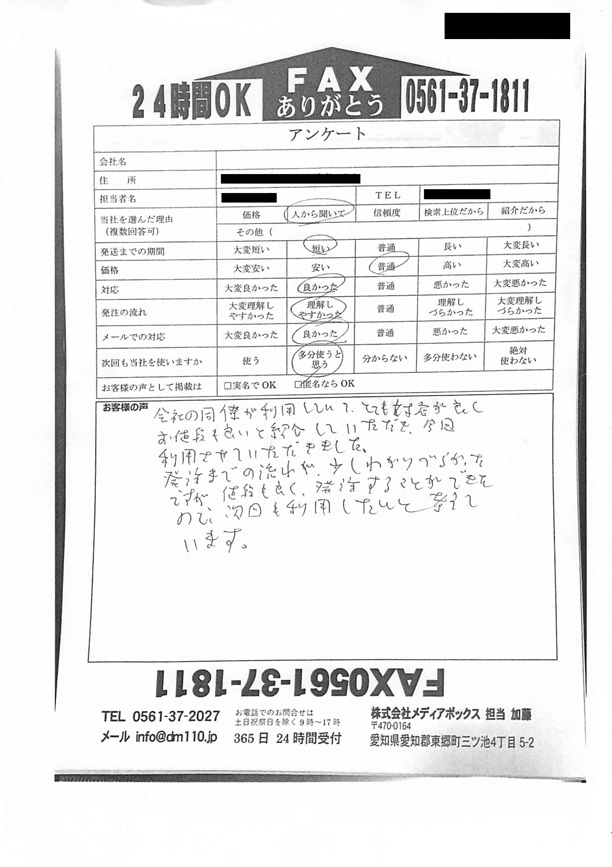 24時間OK
FAX
ありがとう
0561-37-1811
アンケート
会社名
住 所
担当者名 TEL
当社を選んだ理由（複数回答可） 価格 人から聞いて 信頼度 検索上位だから 紹介だから
その他（ ）
発送までの期間 大変短い 短い 普通 長い 大変長い
価格 大変安い 安い 普通 高い 大変高い
対応 大変良かった 良かった 普通 悪かった 大変悪かった
発注の流れ 大変理解しやすかった 理解しやすかった 普通 理解しづらかった 大変理解しづらかった
メールでの対応 大変良かった 良かった 普通 悪かった 大変悪かった
次回も当社を使いますか 使う 多分使うと思う 分からない 多分使わない 絶対使わない
お客様の声として掲載は □実名でOK □匿名ならOK
お客様の声
会社の同僚が利用していて、とても対応が良く
お値段も良いと紹介していただき、今回
利用させていただきました。
発注までの流れが、少しわかりづらかった
ですが、値段も良く、発注することができた
ので、次回も利用したいと考えて
います。
FAX0561-37-1811
TEL 0561-37-2027
お電話でのお問合せは
土日祝祭日を除く9時～17時
株式会社メディアボックス 担当 加藤
〒470-0164
メール info@dm110.jp
365日 24時間受付
愛知県愛知郡東郷町三ツ池4丁目5-2